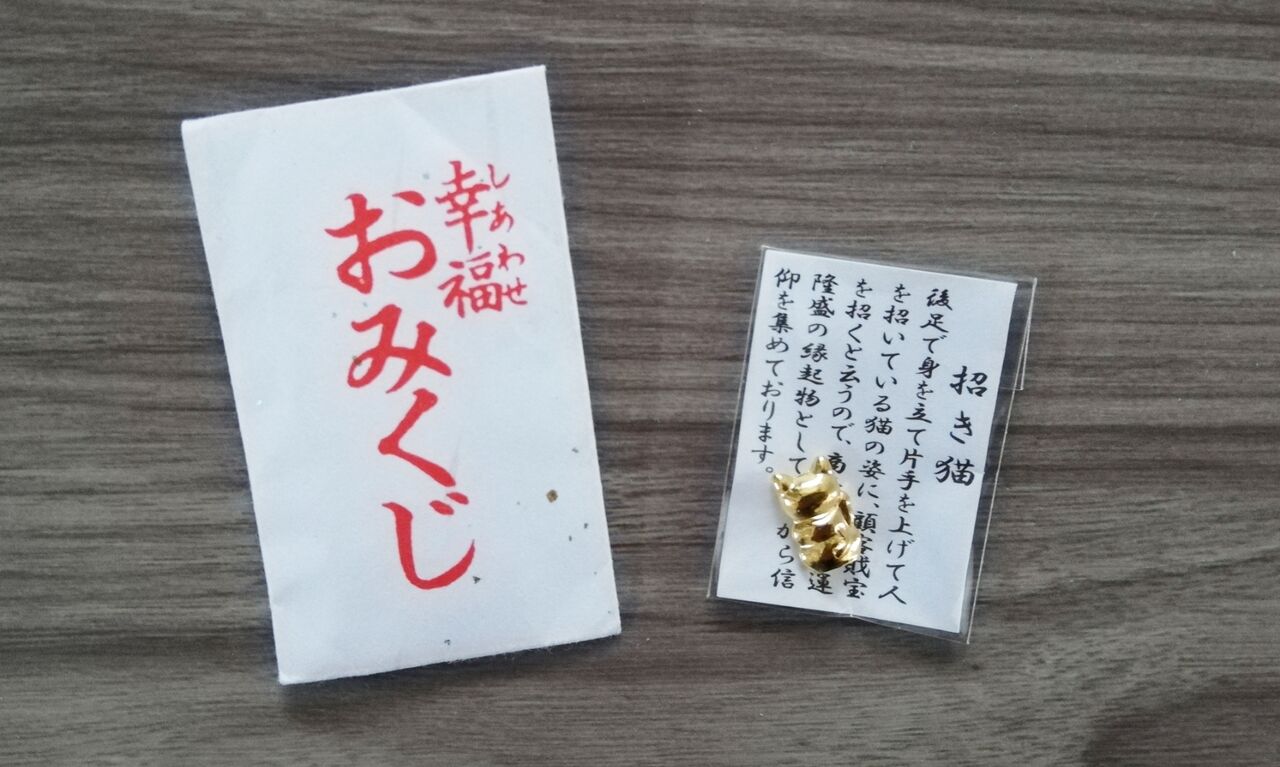 幸福
しあわせ
おみくじ
招き猫
後足で身を立て片手を上げて人
を招いている猫の姿に、顧客戝宝
を招くと云うので、商 運
隆盛の縁起物として から信
仰を集めております。